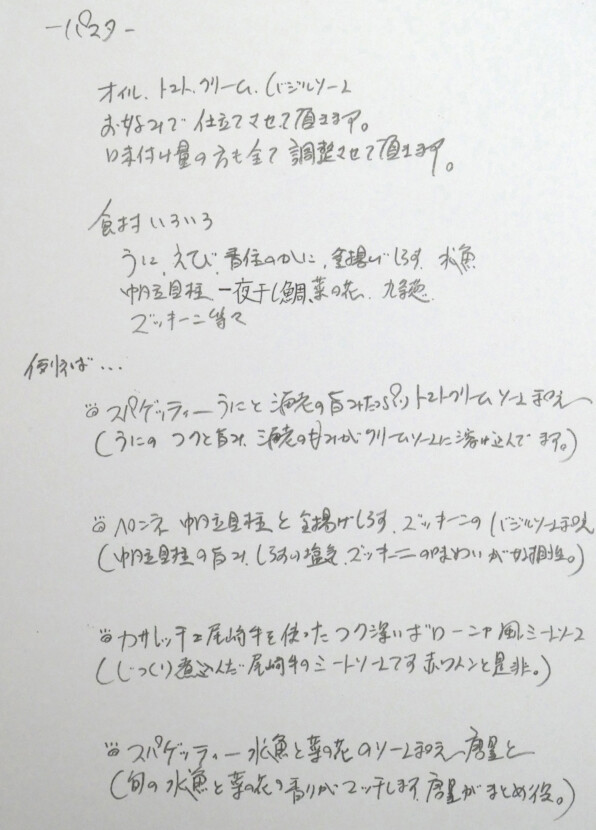 －パスタ－
オイル、トマト、クリーム、バジルソース
お好みで仕立てさせて頂きます。
味付け量の方も全て調整させて頂きます。
食材いろいろ
うに、えび、香住のかに、釜揚げしらす、氷魚
帆立貝柱、一夜干し鯛、菜の花、九条葱
ズッキーニ等々
例えば…
スパゲッティーうにと海老の旨みたっぷりトマトクリームソース和え
(うにのコクと旨み、海老の甘みがクリームソースに溶け込んでます。)
ペンネ 帆立貝柱と釜揚げしらす、ズッキーニのバジルソース和え
(帆立貝柱の旨み、しらすの塩気、ズッキーニの味わいが好相性。)
カサレッチェ尾崎牛を使ったコク深いボローニャ風ミートソース
(じっくり煮込んだ尾崎牛のミートソースです赤ワインと是非。)
スパゲッティー氷魚と菜の花のソース和え 唐墨と
(旬の氷魚と菜の花の香りがマッチします、唐墨がまとめ役。)